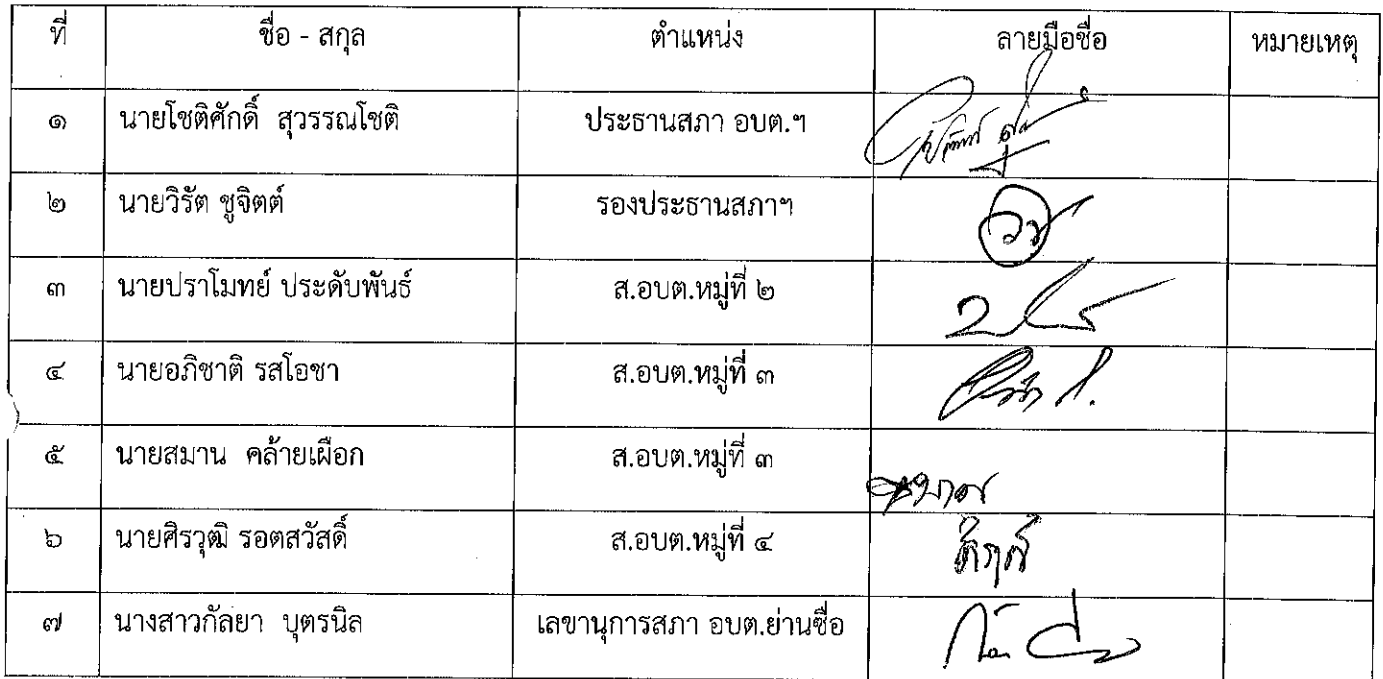 ที่ ชื่อ - สกุล ตำแหน่ง ลายมือชื่อ หมายเหตุ
๑ นายโชติศักดิ์ สุวรรณโชติ ประธานสภา อบต.ฯ
๒ นายวิรัต ชูจิตต์ รองประธานสภาฯ
๓ นายปราโมทย์ ประดับพันธ์ ส.อบต.หมู่ที่ ๒
๔ นายอภิชาติ รสโอชา ส.อบต.หมู่ที่ ๓
๕ นายสมาน คล้ายเผือก ส.อบต.หมู่ที่ ๓
๖ นายศิรวุฒิ รอตสวัสดิ์ ส.อบต.หมู่ที่ ๔
๗ นางสาวกัลยา บุตรนิล เลขานุการสภา อบต.ย่านซื่อ